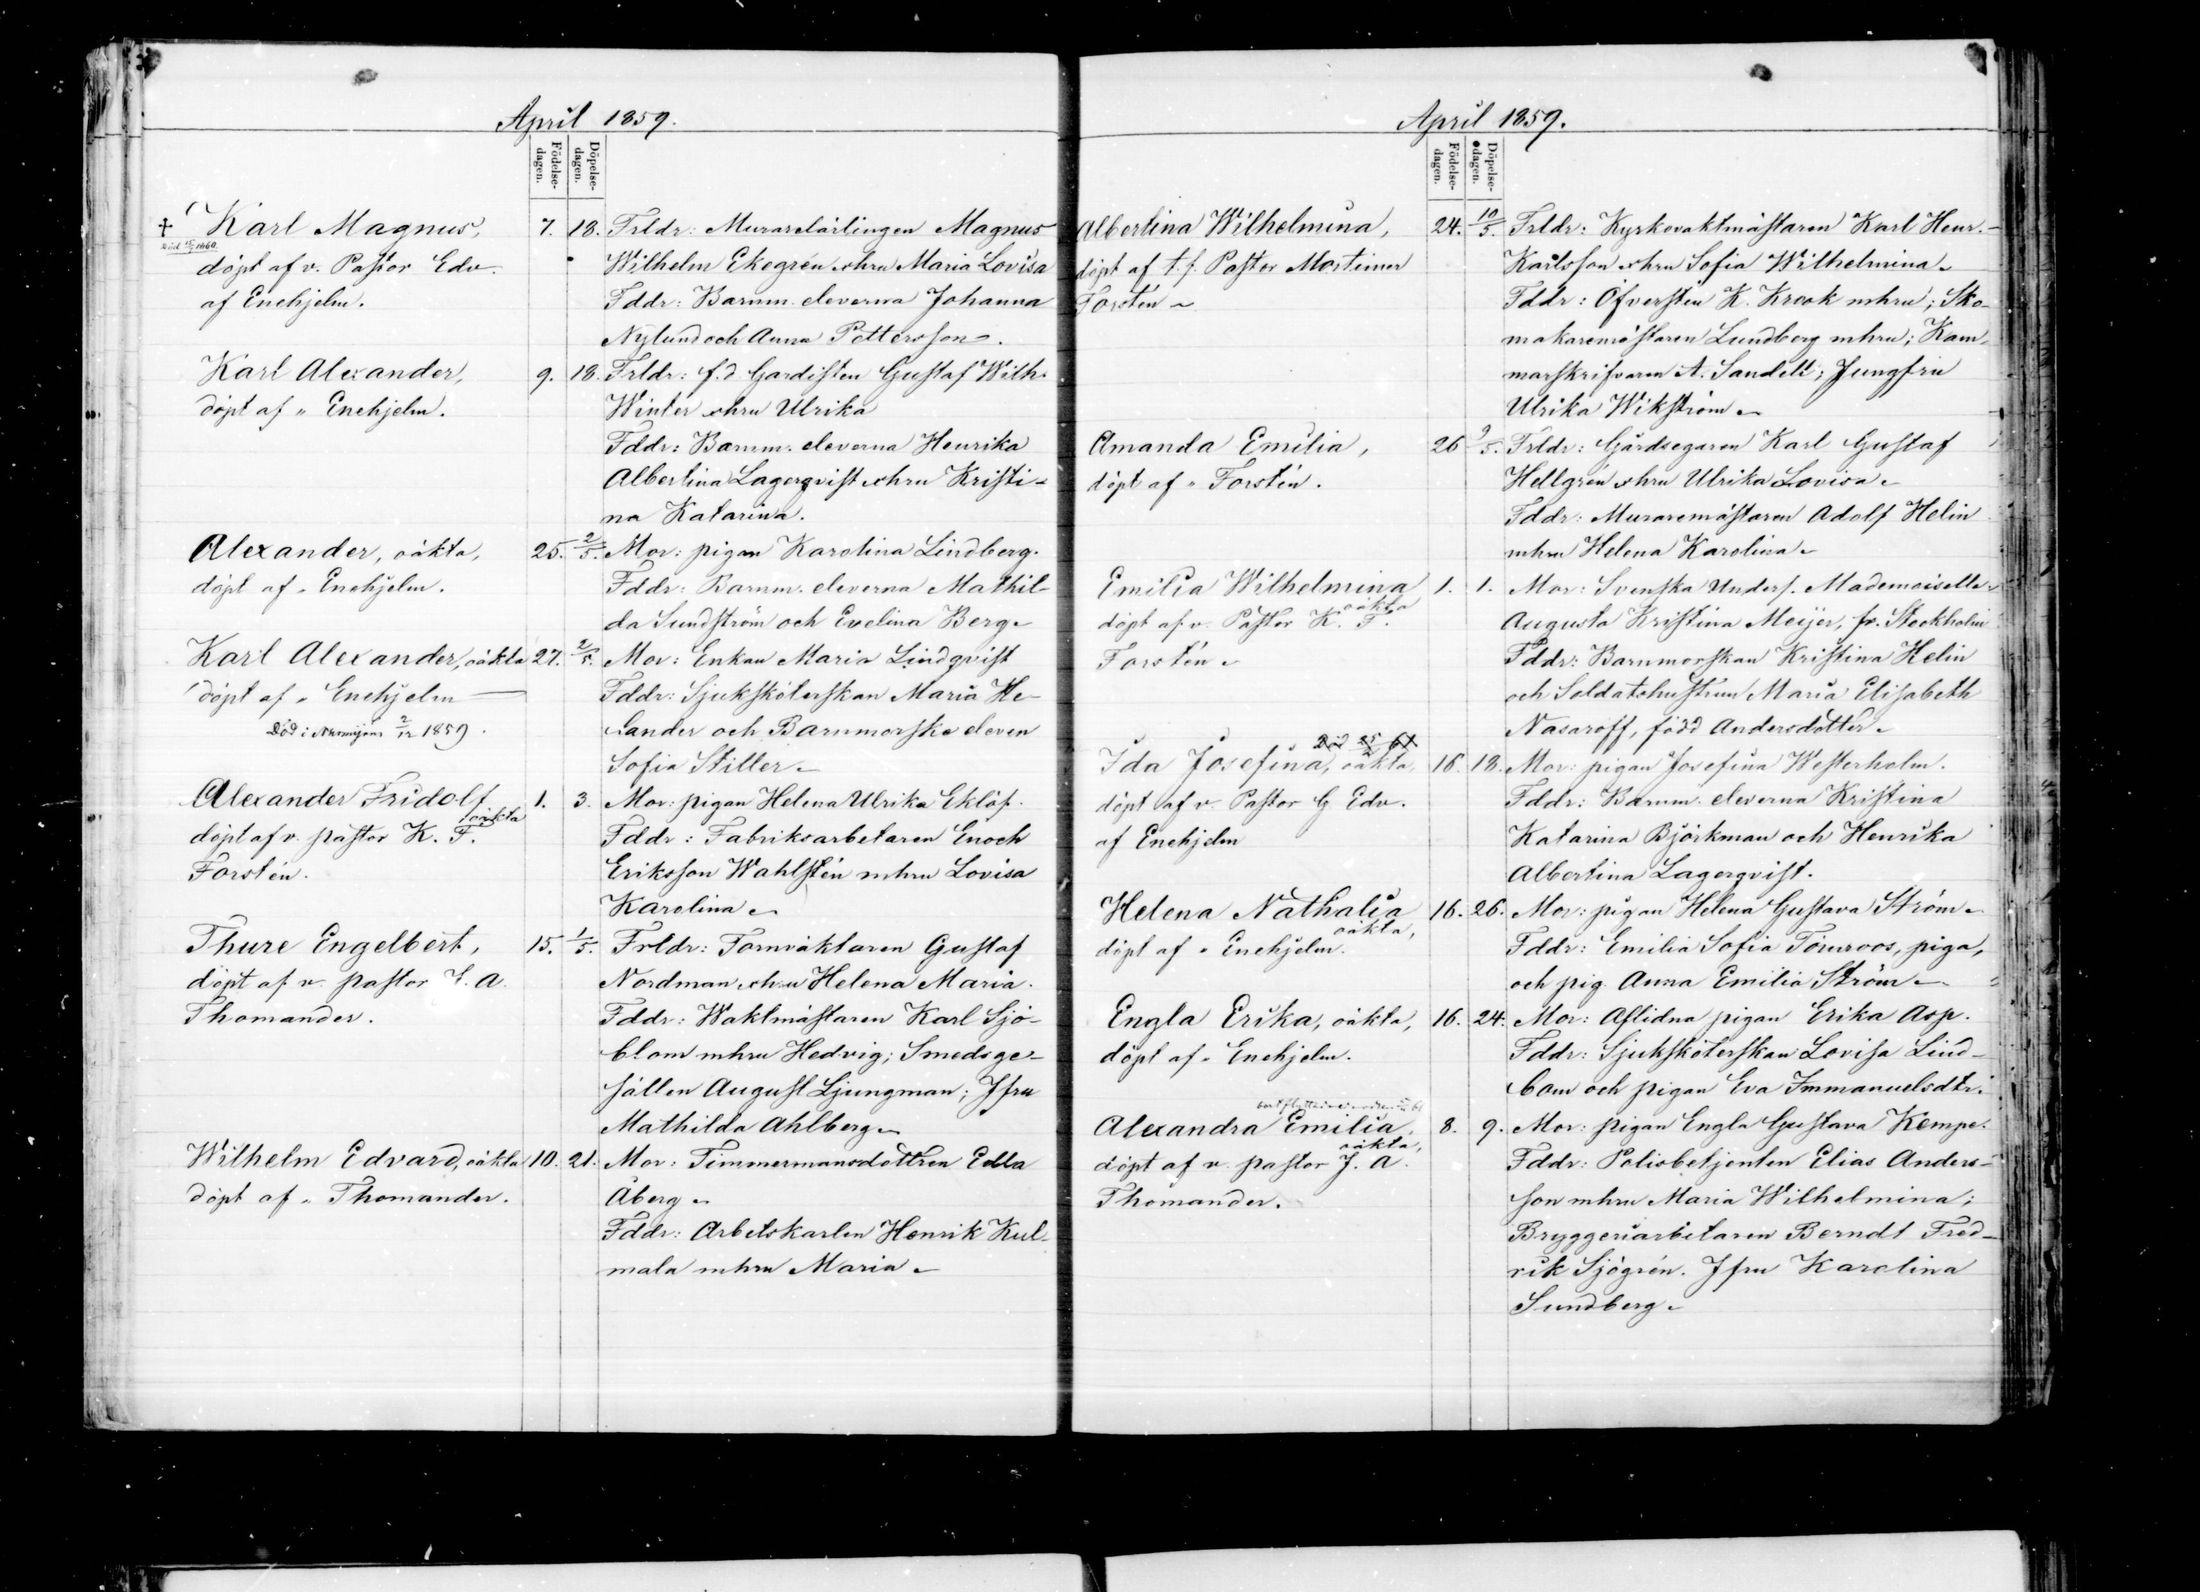 April 1859.
Födelse-
dagen.
Döpelse-
dagen.
Karl Magnus,
död 15/7 1860.
döpt af v. Pastor Edv.
af Enehjelm.
7. 18.
Frldr: Murarelärlingen Magnus
Wilhelm Ekegrén o. hru Maria Lovisa
Fddr: Barnm. eleverna Johanna
Nylund och Anna Pettersson.
Karl Alexander,
döpt af " Enehjelm.
9. 18.
Frldr: f.d Gardisten Gustaf Wilh.
Winter o. hru Ulrika
Fddr: Barnm. eleverna Henrika
Albertina Lagerqvist o. hru Kristi-
na Katarina.
Alexander, oäkta,
döpt af " Enehjelm.
25. 2/5.
Mor: pigan Karolina Lindberg.
Fddr: Barnm. eleverna Mathil-
da Sundström och Evelina Berg.
Karl Alexander, oäkta
döpt af " Enehjelm
Död i 2/12 1859.
27. 2/5.
Mor: Enkan Maria Lindqvist
Fddr: Sjuksköterskan Maria He-
lander och Barnmorske eleven
Sofia Stiller.
Alexander Fridolf
oäkta
döpt af v. pastor K. F.
Forstén.
1. 3.
Mor: pigan Helena Ulrika Eklöf.
Fddr: Fabriksarbetaren Enoch
Eriksson Wahlstén m hru Lovisa
Karolina.
Thure Engelbert,
döpt af v. pastor J. A.
Thomander.
15. 1/5.
Frldr: Tornväktaren Gustaf
Nordman o. hru Helena Maria.
Fddr: Waktmästaren Karl Sjö-
blom m hru Hedvig; Smedsge-
sällen August Ljungman; Jfru
Mathilda Ahlberg.
Wilhelm Edvard, oäkta
döpt af " Thomander.
10. 21.
Mor: Timmermansdottren Edla
Åberg.
Fddr: Arbetskarlen Henrik Kul-
mala m hru Maria.
April 1859.
Födelse-
dagen.
Döpelse-
dagen.
Albertina Wilhelmina,
döpt af t.f. Pastor Mortimer
Forstén
24. 10/5.
Frldr: Kyrkovaktmästaren Karl Henr.
Karlsson o. hru Sofia Wilhelmina.
Fddr: Öfversten K. Krook m hru; Sko-
makaremästaren Lundberg m hru; Kam-
marskrifvaren A. Sandell; Jungfru
Ulrika Wikström.
Amanda Emilia,
döpt af " Forstén.
26 9/5.
Frldr: Gårdsegaren Karl Gustaf
Hellgrén o. hru Ulrika Lovisa.
Fddr: Muraremästaren Adolf Helin
m hru Helena Karolina.
Emilia Wilhelmina
oäkta
döpt af v. Pastor K. F.
Forstén.
1. 1.
Mor: Svenska Unders. Mademoiselle
Augusta Kristina Meijer, fr. Stockholm
Fddr: Barnmorskan Kristina Helin
och Soldatshustrun Maria Elisabeth
Nasaroff, född Andersdotter.
Ida Josefina, oäkta,
döpt af v. Pastor G Edv.
af Enehjelm
16. 18.
Mor: pigan Josefina Westerholm.
Fddr: Barnm. eleverna Kristina
Katarina Björkman och Henrika
Albertina Lagerqvist.
Helena Nathalia
oäkta,
döpt af " Enehjelm.
16. 26.
Mor: pigan Helena Gustava Ström.
Fddr: Emilia Sofia Törnroos, piga,
och pig. Anna Emilia Ström.
Engla Erika, oäkta,
döpt af " Enehjelm.
16. 24.
Mor: Aflidna pigan Erika Asp.
Fddr: Sjuksköterskan Lovisa Lind-
bom och pigan Eva Immanuelsdtr.
Alexandra Emilia,
oäkta,
döpt af v. pastor J. A.
Thomander.
8. 9.
Mor: pigan Engla Gustava Kempe.
Fddr: Polisbetjenten Elias Anders-
son m hru Maria Wilhelmina;
Bryggeriarbetaren Berndt Fred-
rik Sjögrén. Jfru Karolina
Sundberg.